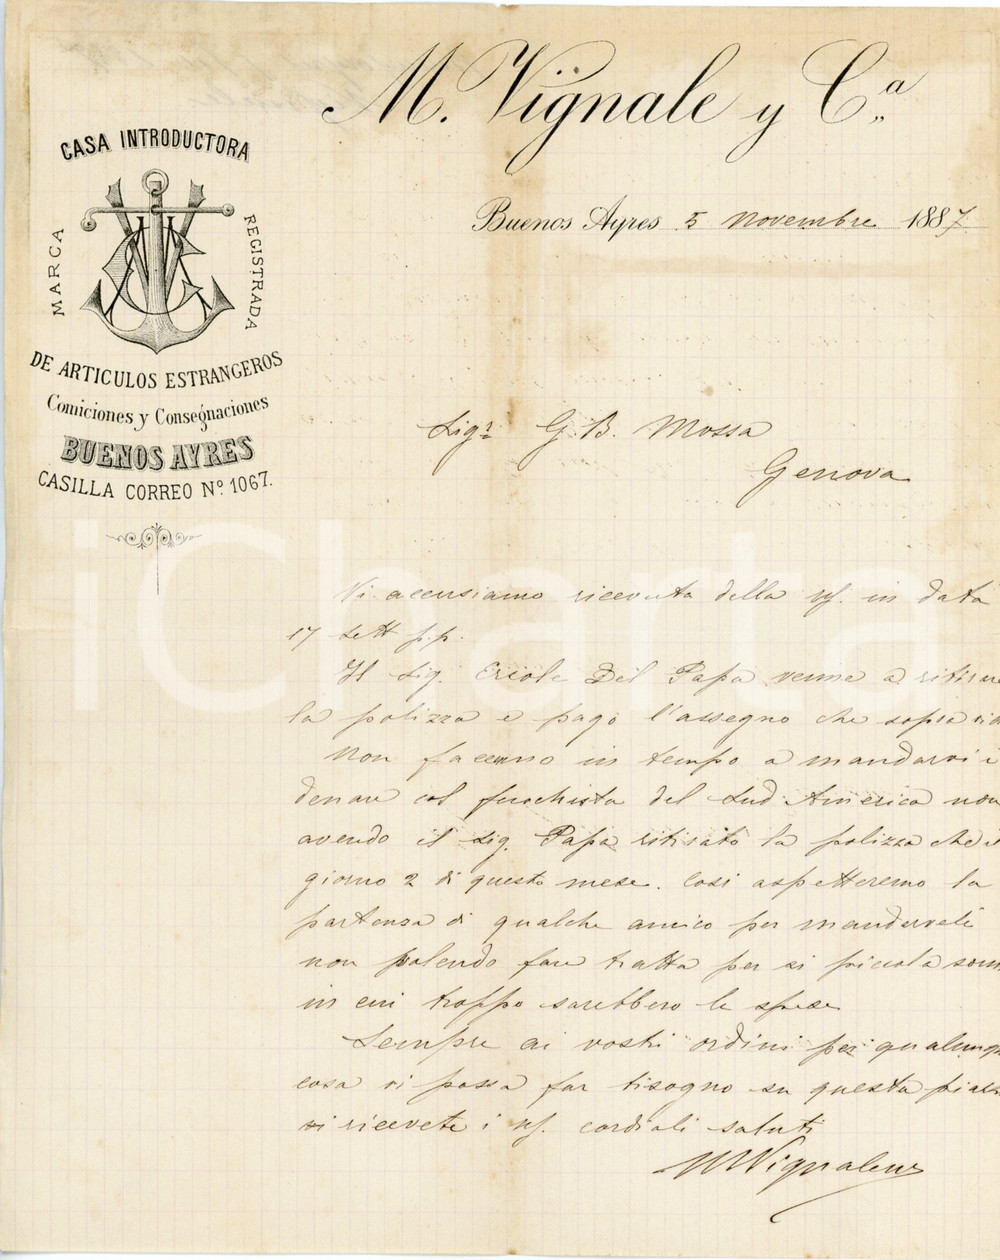 M. Vignale y Cª
CASA INTRODUCTORA
MARCA
REGISTRADA
DE ARTICULOS ESTRANGEROS
Comiciones y Consegnaciones
BUENOS AYRES
CASILLA CORREO Nº 1067.
Buenos Ayres 5 Novembre 1887
Sigr G. B. Mossa
Genova
Vi accusiamo ricevuta della in data
17 Sett p.p.
Il Sig. Ercole Del Papa venne a ritirare
la polizza e pagò l'assegno che sopra
Non facemmo in tempo a mandarvi i
denari col fuochista del Sud America non
avendo il Sig. Papa ritirato la polizza che il
giorno 2 di questo mese. Così aspetteremo la
partenza di qualche amico per mandarveli
non potendo fare tratta per si piccola som
in cui troppo sarebbero le spese
Sempre ai vostri ordini per qualunq
cosa vi possa far bisogno su questa piazz
ricevete i cordiali saluti
M Vignale
iCharta